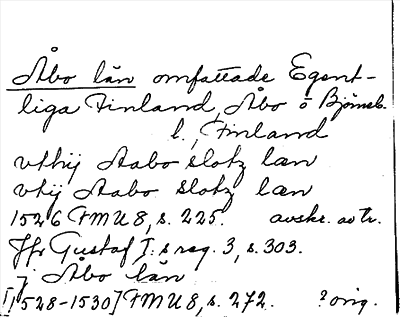 Åbo län omfattade Egent-
liga Finland, Åbo o Björneb.
l., Finland
vthij Aabo slotz læn
vtij Aabo slotz læn
1526 FMU 8, s. 225. avskr. avtr.
Jfr Gustaf I:s reg. 3, s. 303.
j Åbo län
[1528-1530] FMU 8, s. 272. ? orig.